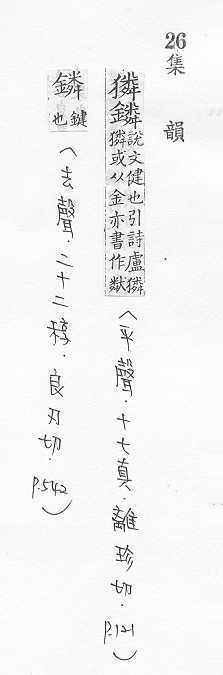 26集　韻
獜鏻說文健也引詩盧獜獜或从金亦書作㺍（平聲．十七真．離珍切．P.121）
鏻鍵也（去聲．二十二稕．良刃切．P.542）